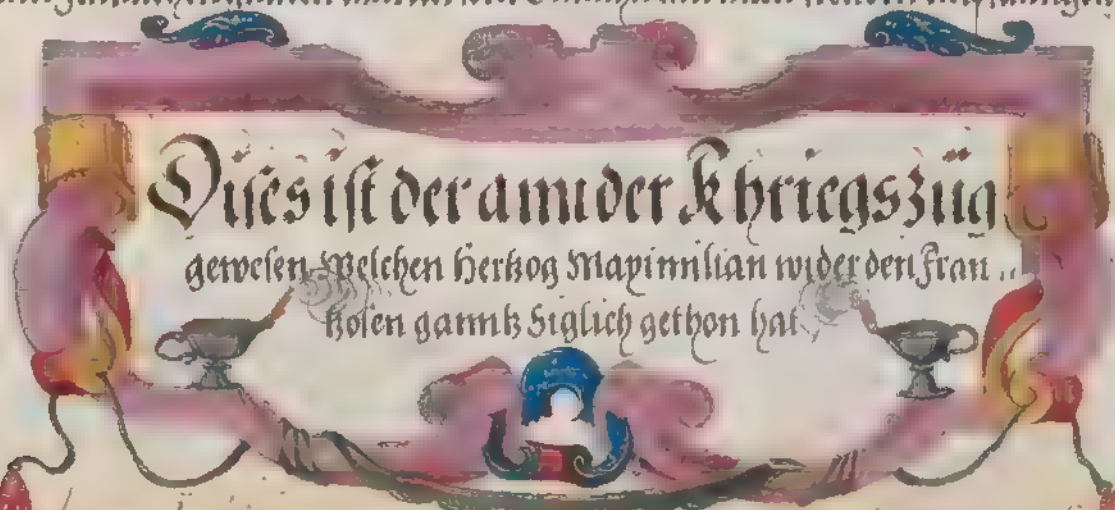 Dises ist der annder Khriegszüg
gewesen Welchen Hertzog Maximilian wider den Fran
tzosen ganntz Siglich gethon hat